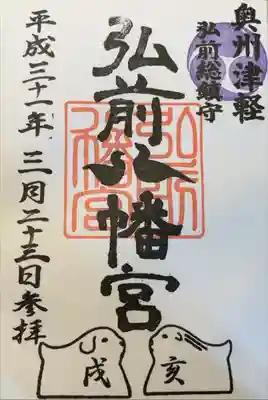 奥州津軽
弘前総鎮守
弘前八幡宮
弘前
八幡宮
平成三十一年 三月二十三日参拝
戌
亥